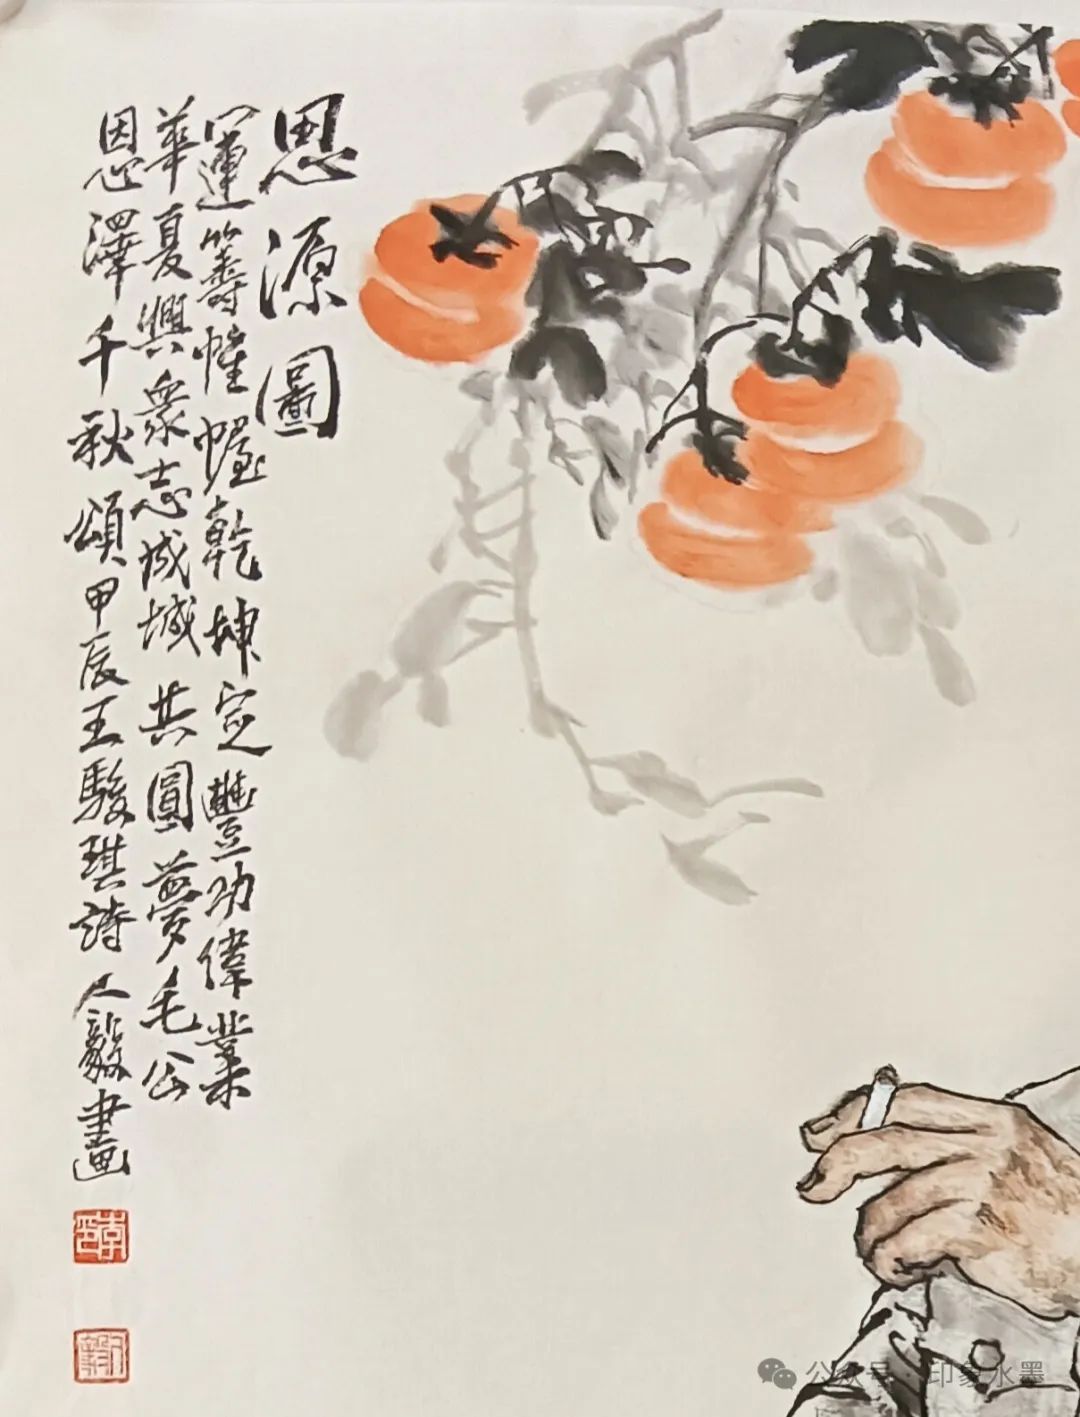 思源圖
運籌帷幄乾坤定豐功偉業
華夏興衆志成城共圓夢毛公
恩澤千秋頌甲辰王駿琪詩人毅畫
李印
公众号 · 印象水墨